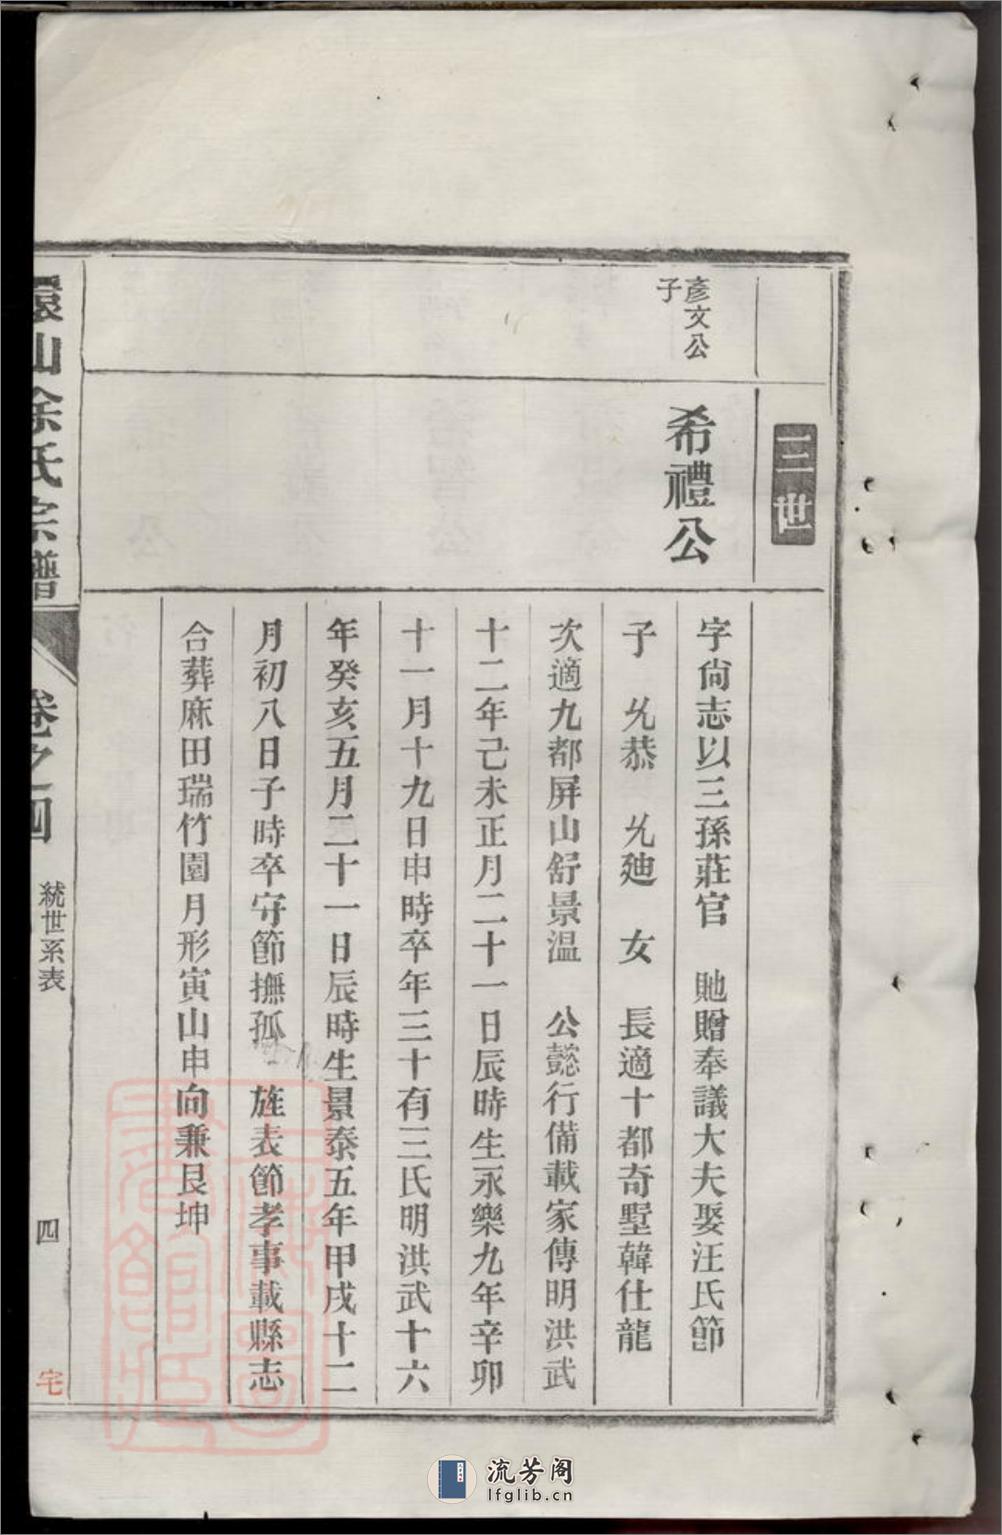 三世
彥文公
子
希禮公
字尙志以三孫莊官　貤贈奉議大夫娶汪氏節
子　允恭　允廸　女　長適十都奇墅韓仕龍
次適九都屏山舒景温　公懿行備載家傳明洪武
十二年己未正月二十一日辰時生永樂九年辛卯
十一月十九日申時卒年三十有三氏明洪武十六
年癸亥五月二十一日辰時生景泰五年甲戌十二
月初八日子時卒守節撫孤　旌表節孝事載縣志
合葬麻田瑞竹園月形寅山申向兼艮坤
環山余氏宗譜
卷之四
統世系表
四
宅
流芳阁
lfglib.cn